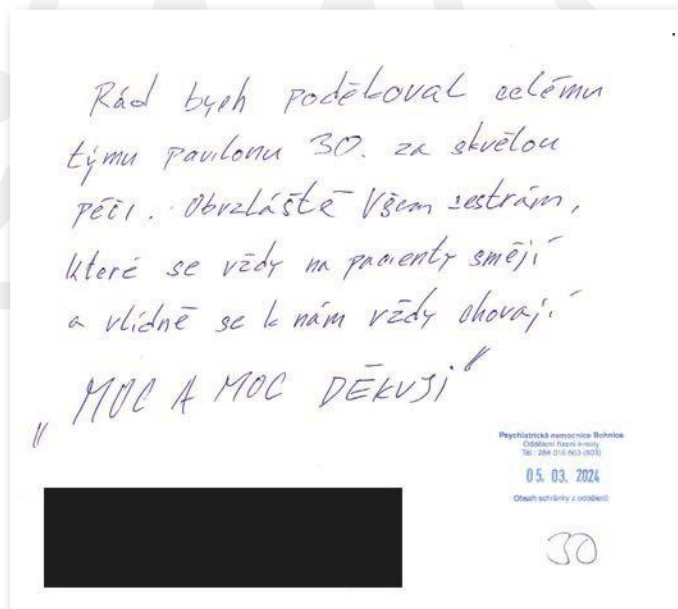 Rád bych poděkoval celému
týmu pavilonu 30. za skvělou
péči. Obvzláště Všem sestrám,
které se vždy na pacienty smějí
a vlídně se k nám vždy chovají
„MOC A MOC DĚKUJI"
Psychiatrická nemocnice Bohnice
Oddělení řízení kvality
Tel.: 284 016
05. 03. 2024
Obsah schránky z oddělení:
30